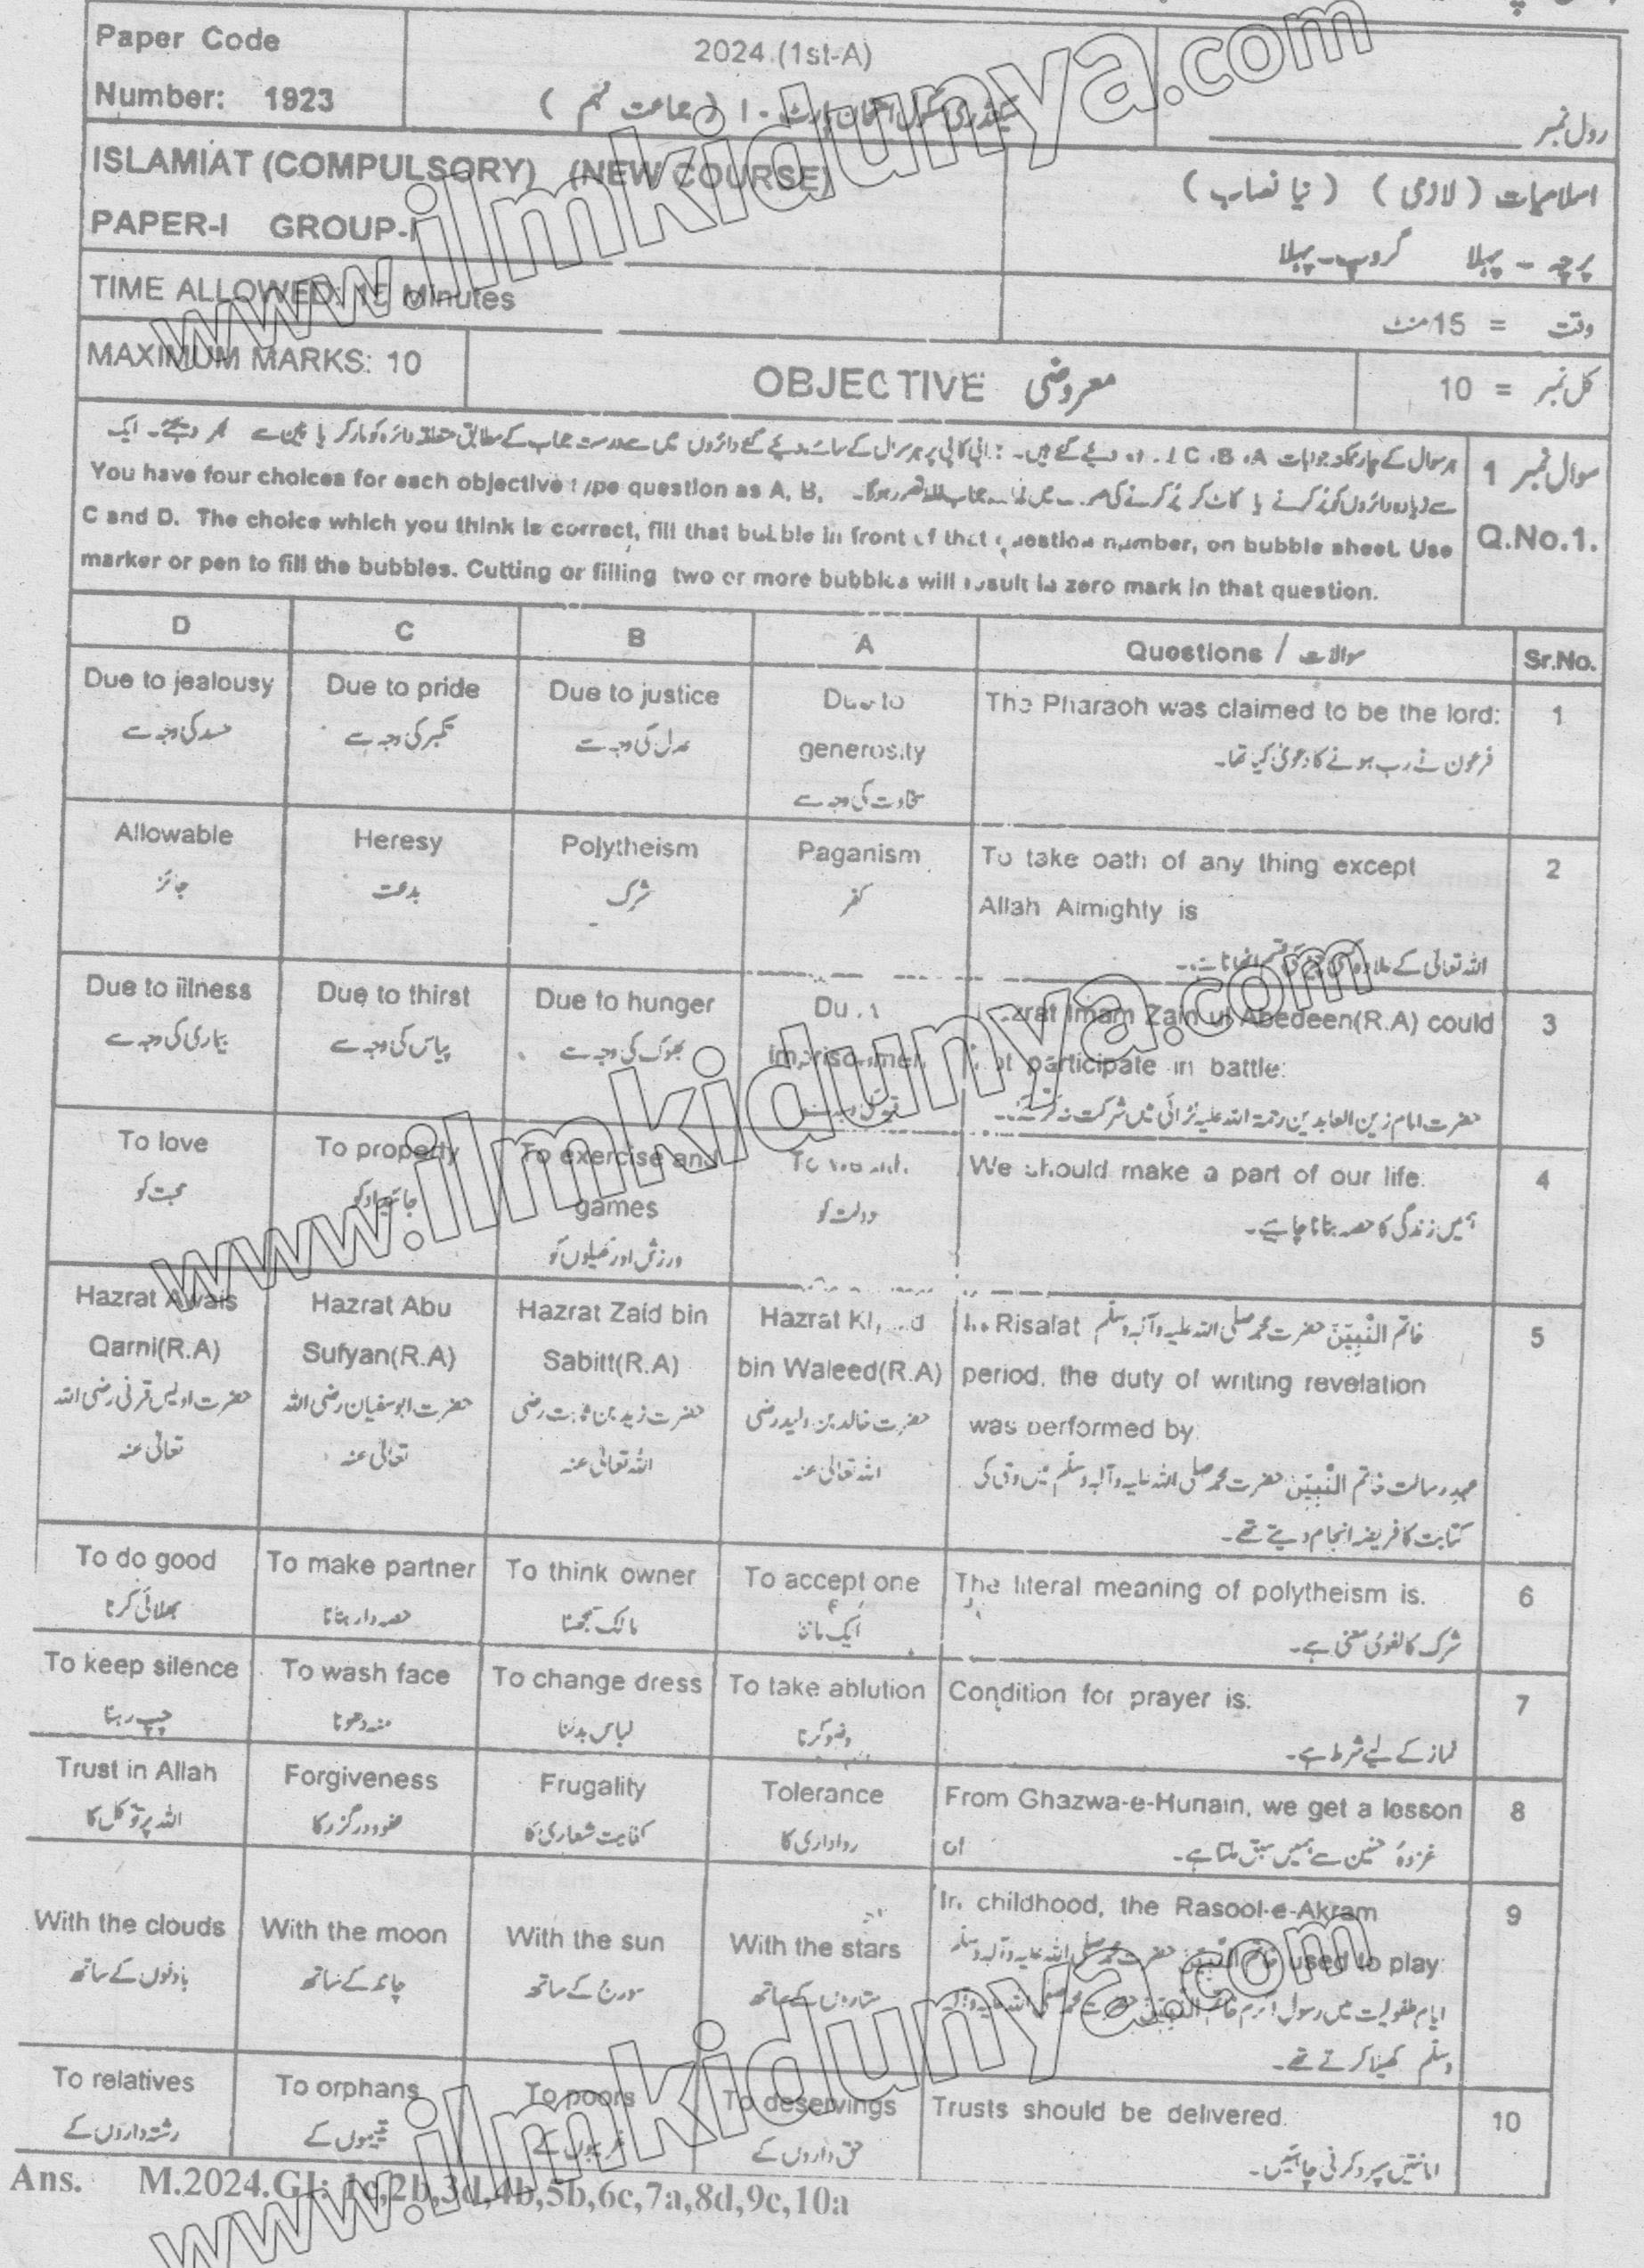 Paper Code
Number: 1923
2024.(1st-A)
سیکنڈری سکول امتحان پارٹ - I ( جماعت نہم )
رول نمبر
ISLAMIAT (COMPULSORY) (NEW COURSE)
PAPER-I GROUP-I
اسلامیات ( لازمی ) ( نیا نصاب )
پرچہ - پہلا گروپ - پہلا
TIME ALLOWED: 15 Minutes
وقت = 15 منٹ
MAXIMUM MARKS: 10
OBJECTIVE معروضی
کل نمبر = 10
سوال نمبر 1
Q.No.1.
You have four choices for each objective type question as A, B,
C and D. The choice which you think is correct, fill that bubble in front of that question number, on bubble sheet. Use
marker or pen to fill the bubbles. Cutting or filling two or more bubbles will result in zero mark in that question.
D C B A Questions / سوالات Sr.No.
Due to jealousy
حسد کی وجہ سے
Due to pride
تکبر کی وجہ سے
Due to justice
عدل کی وجہ سے
Due to
generosity
سخاوت کی وجہ سے
The Pharaoh was claimed to be the lord:
فرعون نے رب ہونے کا دعویٰ کیا تھا۔
1
Allowable
جائز
Heresy
بدعت
Polytheism
شرک
Paganism
کفر
To take oath of any thing except
Allah Almighty is
اللہ تعالیٰ کے علاوہ کسی چیز کی قسم اٹھانا ہے۔
2
Due to illness
بیماری کی وجہ سے
Due to thirst
پیاس کی وجہ سے
Due to hunger
بھوک کی وجہ سے
Imam Zain ul Abedeen(R.A) could
participate in battle:
حضرت امام زین العابدین رحمۃ اللہ علیہ لڑائی میں شرکت نہ کر سکے۔
3
To love
محبت کو
To property
جائیداد کو
To exercise and
games
ورزش اور کھیلوں کو
دولت کو
We should make a part of our life.
ہمیں زندگی کا حصہ بنانا چاہیے۔
4
Hazrat Awais
Qarni(R.A)
حضرت اویس قرنی رضی اللہ
تعالیٰ عنہ
Hazrat Abu
Sufyan(R.A)
حضرت ابوسفیان رضی اللہ
تعالیٰ عنہ
Hazrat Zaid bin
Sabitt(R.A)
حضرت زید بن ثابت رضی
اللہ تعالیٰ عنہ
Hazrat
bin Waleed(R.A)
حضرت خالد بن ولید رضی
اللہ تعالیٰ عنہ
Risalat خاتم النّبِیّٖنَ حضرت محمد صلی اللہ علیہ وآلہ وسلم
period, the duty of writing revelation
was performed by:
عہدِ رسالت خاتم النّبِیّٖنَ حضرت محمد صلی اللہ علیہ وآلہ وسلم میں وحی کی
کتابت کا فریضہ انجام دیتے تھے۔
5
To do good
بھلائی کرنا
To make partner
حصہ دار بنانا
To think owner
مالک سمجھنا
To accept one
ایک ماننا
The literal meaning of polytheism is.
شرک کا لغوی معنی ہے۔
6
To keep silence
چپ رہنا
To wash face
منہ دھونا
To change dress
لباس بدلنا
To take ablution
وضو کرنا
Condition for prayer is:
نماز کے لیے شرط ہے۔
7
Trust in Allah
اللہ پر توکل کا
Forgiveness
عفو و درگزر کا
Frugality
کفایت شعاری کا
Tolerance
رواداری کا
From Ghazwa-e-Hunain, we get a lesson
of
غزوۂ حنین سے ہمیں سبق ملتا ہے۔
8
With the clouds
بادلوں کے ساتھ
With the moon
چاند کے ساتھ
With the sun
سورج کے ساتھ
With the stars
ستاروں کے ساتھ
In childhood, the Rasool-e-Akram
خاتم النّبِیّٖنَ حضرت محمد صلی اللہ علیہ وآلہ وسلم used to play:
ایام طفولیت میں رسول اکرم خاتم النّبِیّٖنَ حضرت محمد صلی اللہ علیہ وآلہ
وسلم کھیلا کرتے تھے۔
9
To relatives
رشتہ داروں کے
To orphans
یتیموں کے
To poors
غریبوں کے
To deservings
حق داروں کے
Trusts should be delivered.
امانتیں سپرد کرنی چاہئیں۔
10
Ans. M.2024.GI: 1c,2b,3d,4b,5b,6c,7a,8d,9c,10a
www.ilmkidunya.com
www.ilmkidunya.com
www.ilmkidunya.com